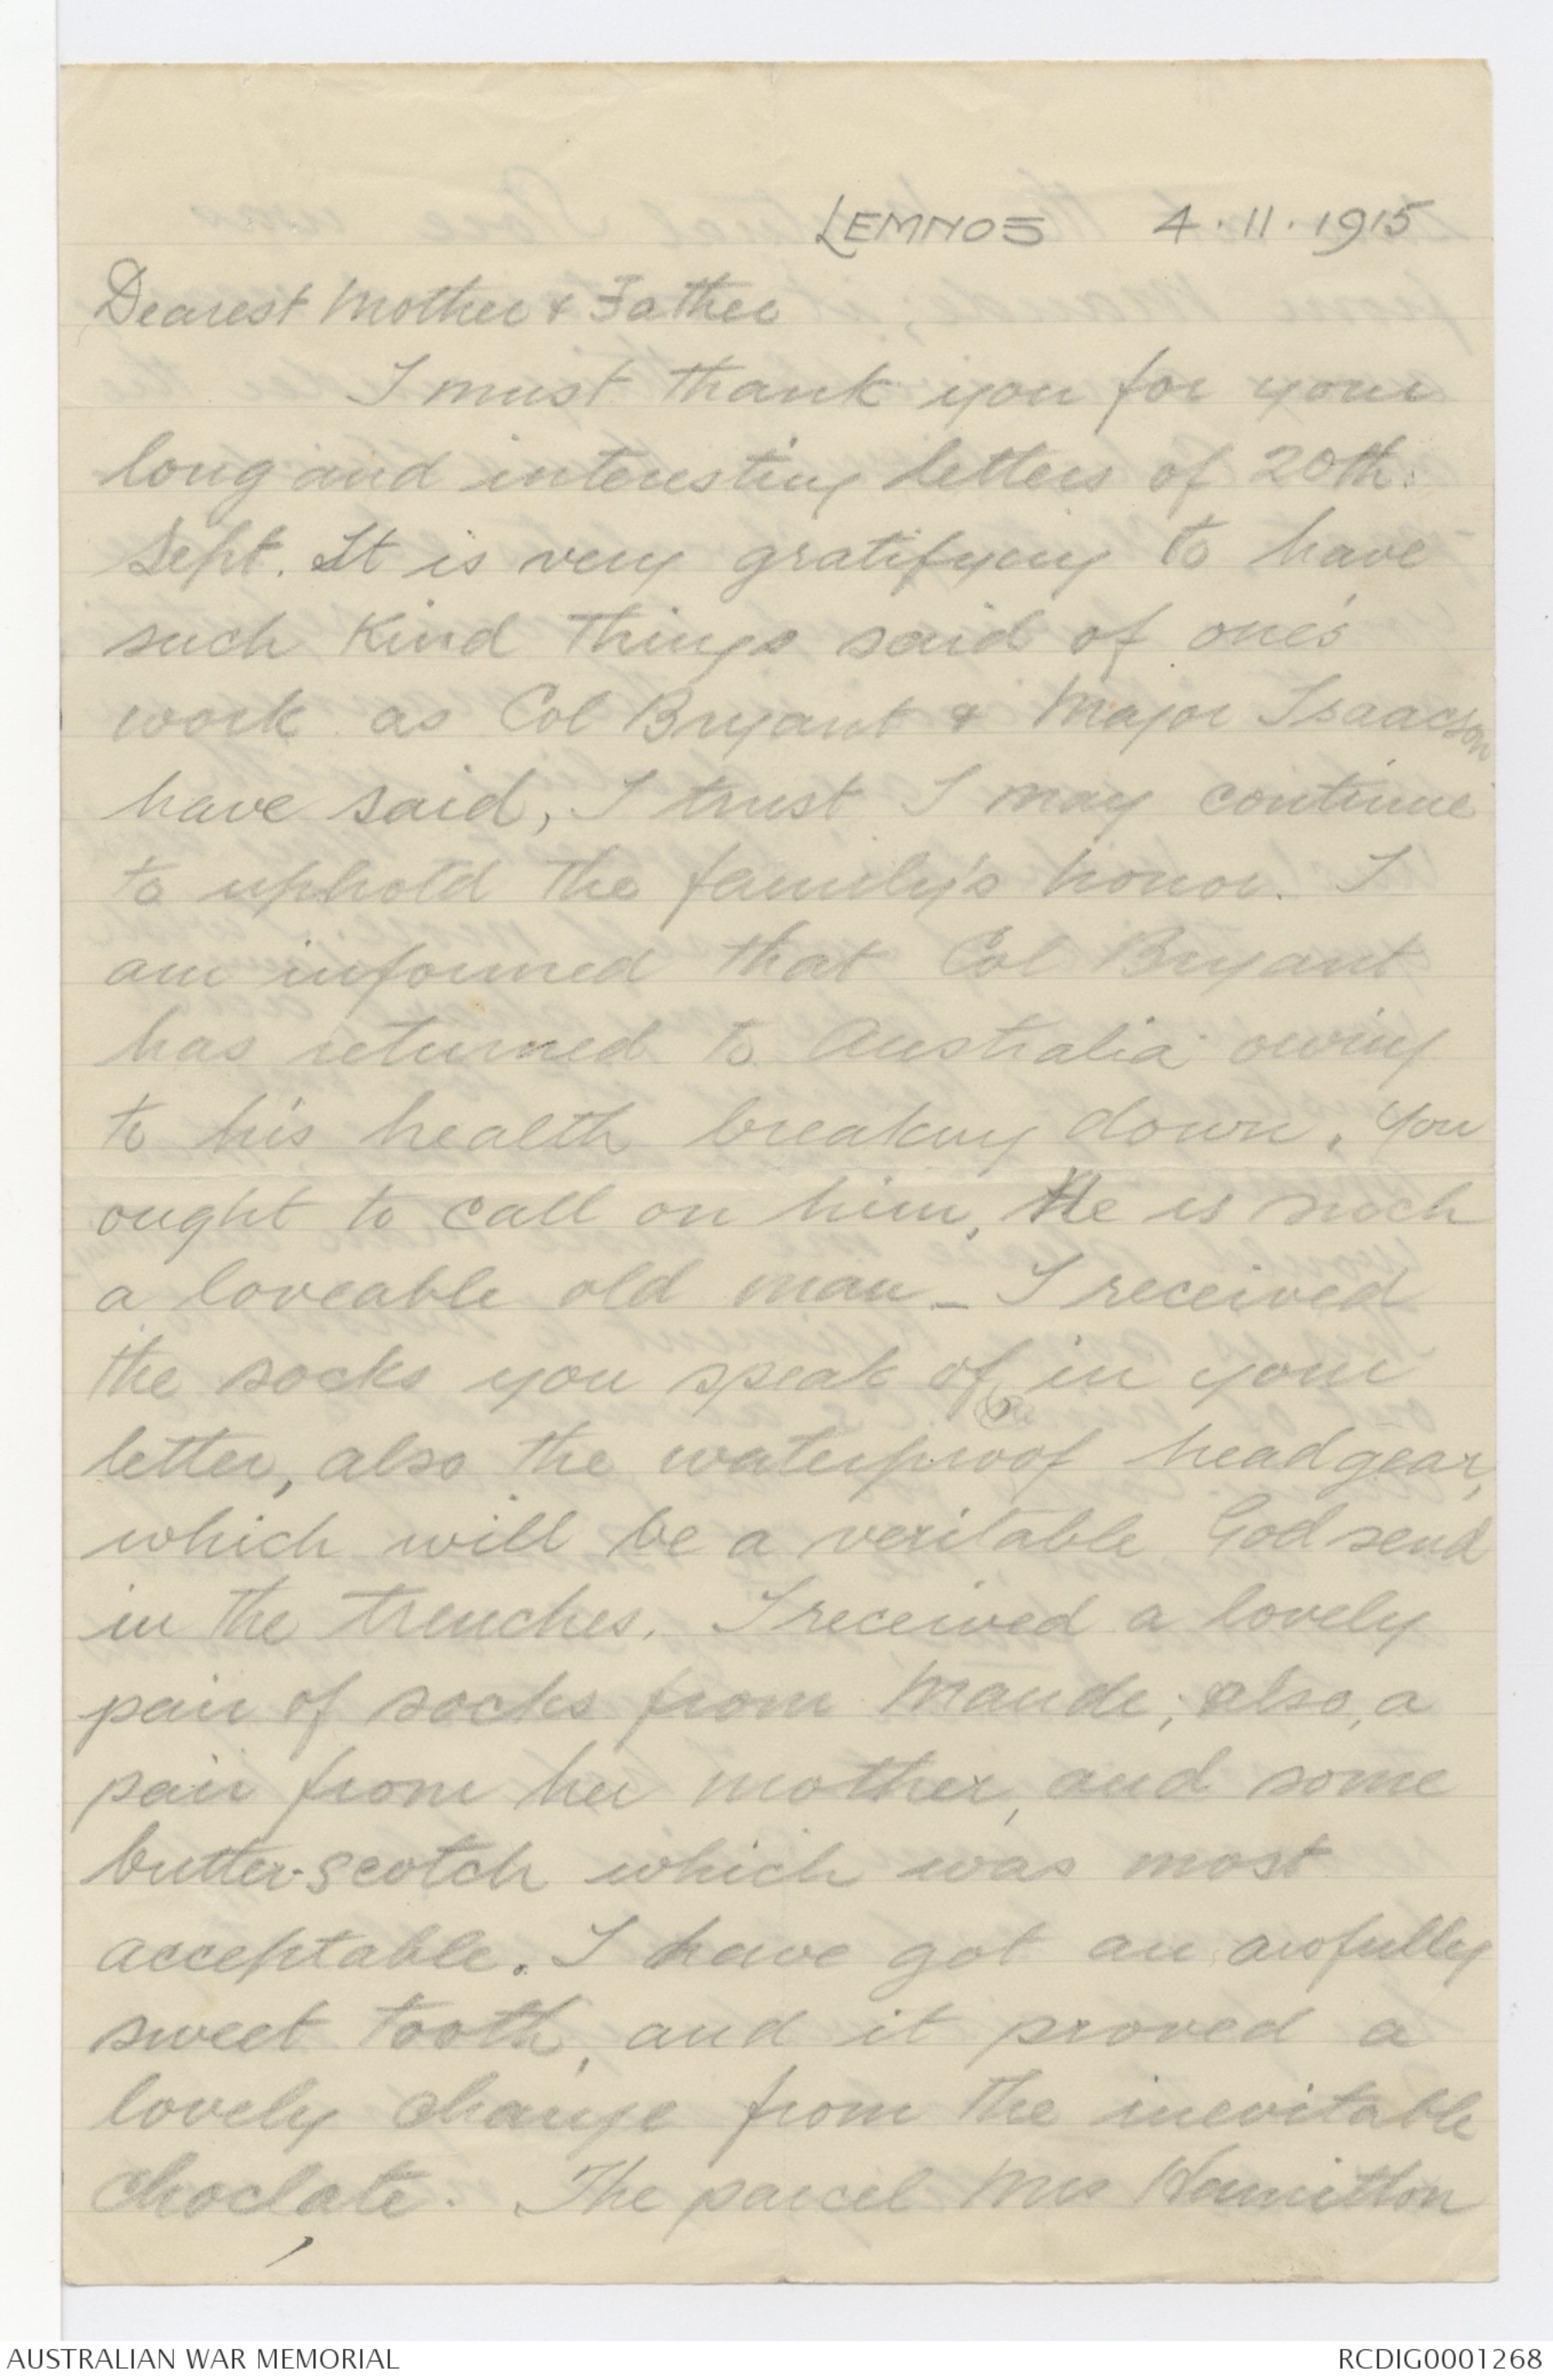 LEMNOS 4.11.1915
Dearest Mother & Father
I must thank you for your
long and interesting letters of 20th:
Sept. It is very gratifying to have
such kind things said of one's
work as Col Bryant & Major Isaacson
have said, I trust I may continue
to uphold the family's honor. I
am informed that Col Bryant
has returned to Australia owing
to his health breaking down. You
ought to call on him, He is such
a loveable old man _ I received
the socks you speak of in your
letter, also the waterproof headgear,
which will be a veritable God send
in the trenches. I received a lovely
pair of socks from Maude; also, a
pair from her mother, and some
butter-scotch which was most
acceptable. I have got an awfully
sweet tooth, and it proved a
lovely change from the inevitable
choclate. The parcel Mrs Hamilton
AUSTRALIAN WAR MEMORIAL
RCDIG0001268